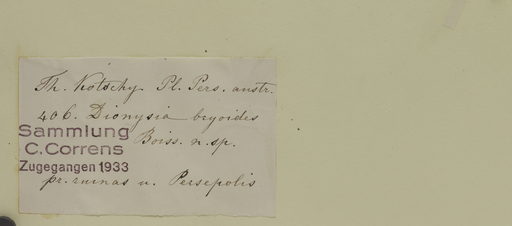 Th. Kotschy. Pl. Pers. austr.
406. Dionysia bryoides
Boiss. n. sp.
Sammlung
C. Correns
Zugegangen 1933
pr. ruinas u. Persepolis